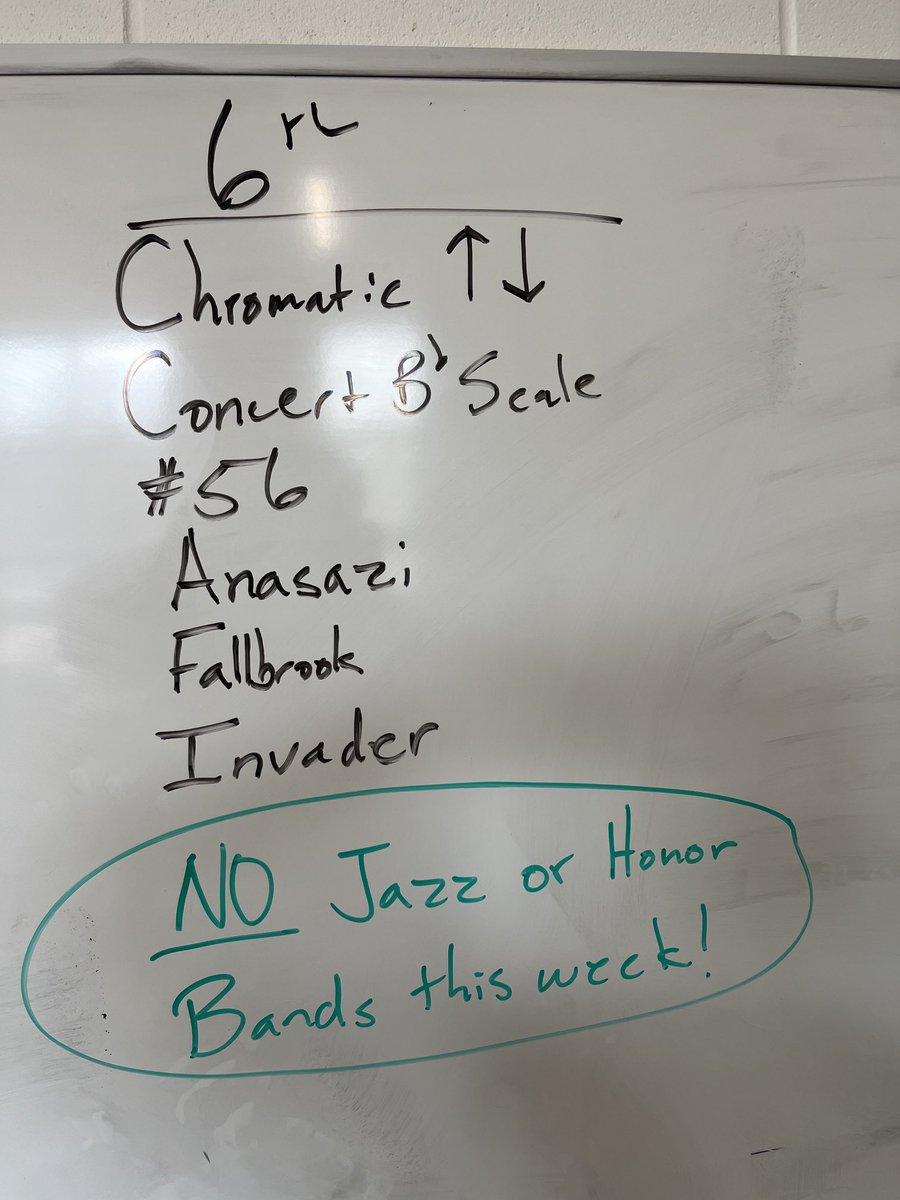 6th
Chromatic ↑↓
Concert B♭ Scale
#56
Anasazi
Fallbrook
Invader
NO Jazz or Honor
Bands this week!